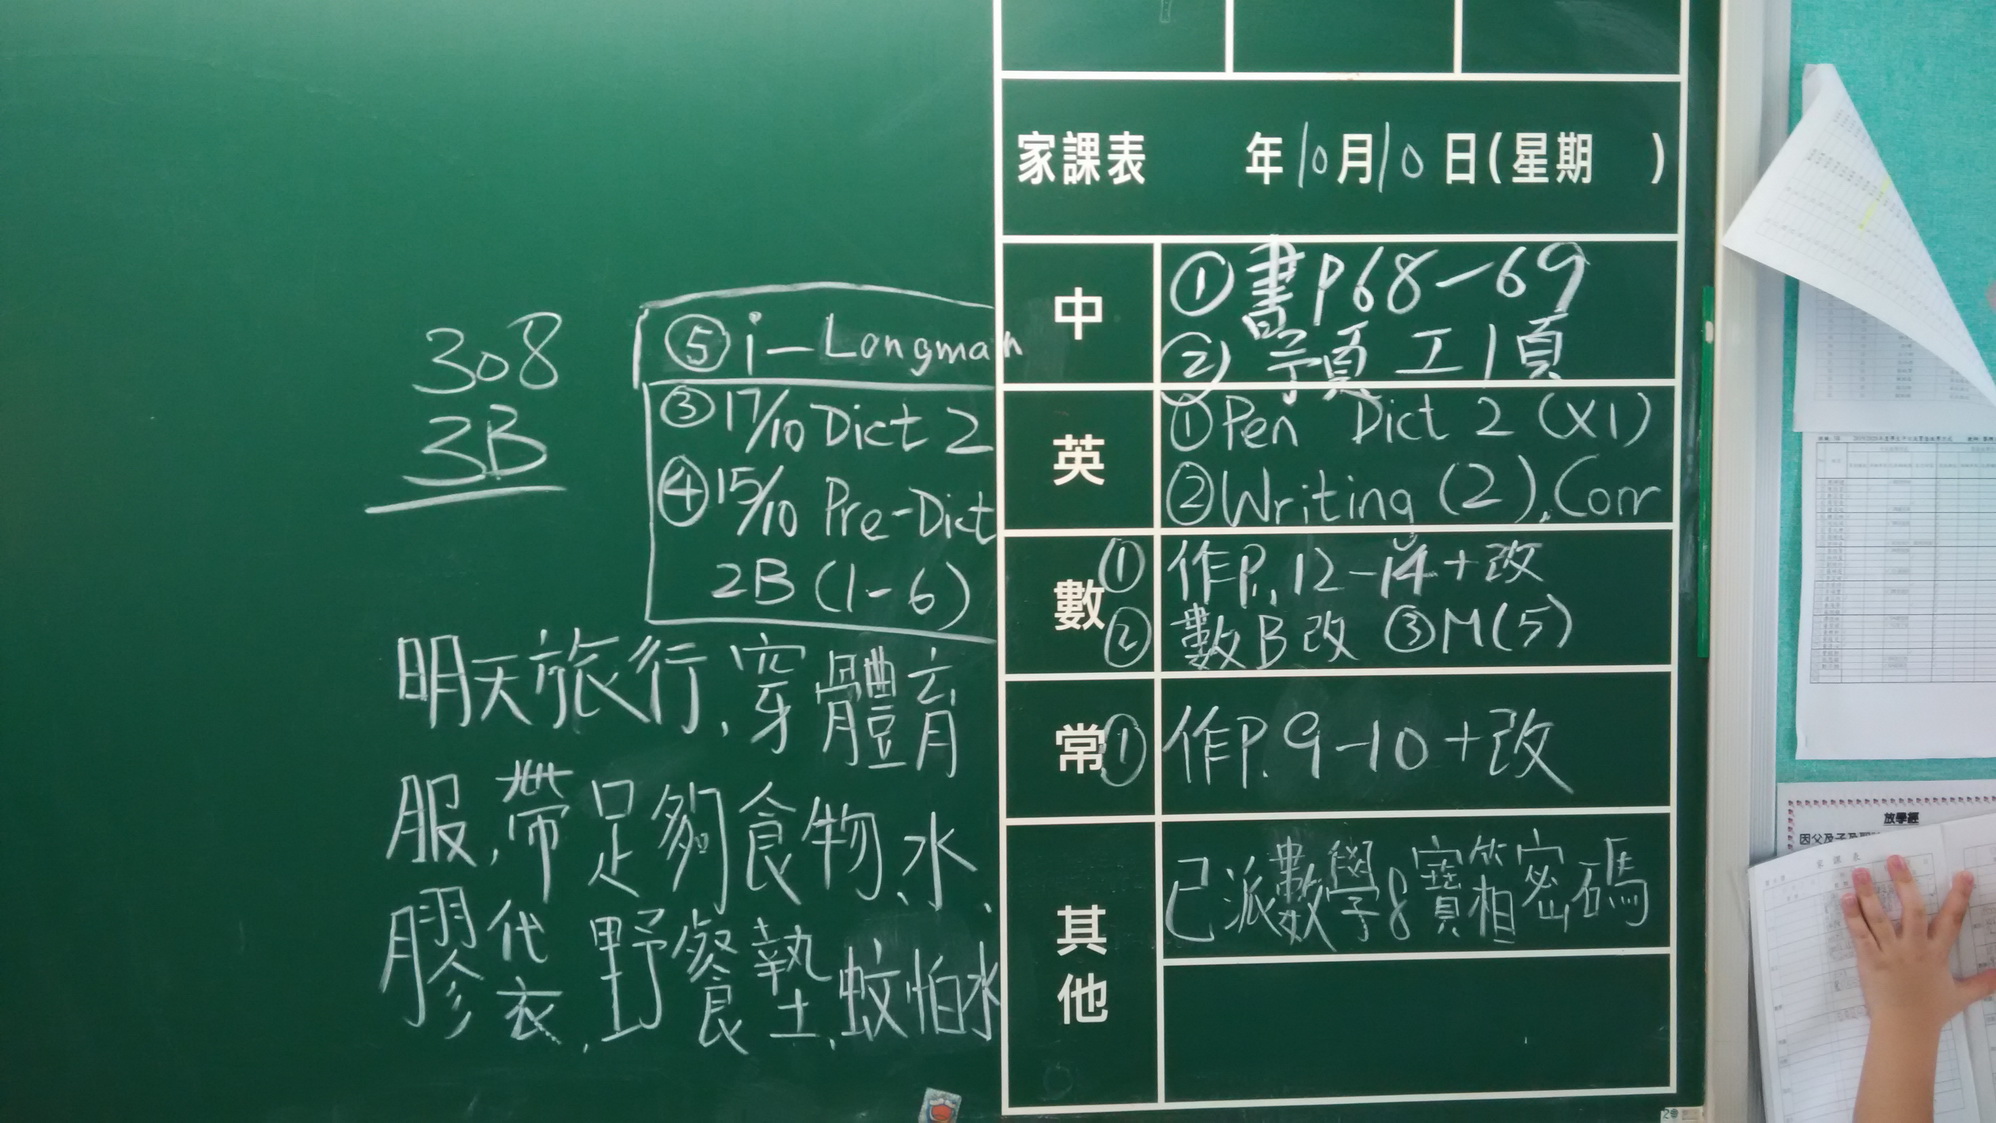 308
3B
⑤ i-Longman
③ 17/10 Dict 2
④ 15/10 Pre-Dict
2B (1-6)
明天旅行,穿體育
服,帶足夠食物、水、
膠袋,野餐墊,蚊怕水
家課表 年10月10日(星期 )
中
① 書P68-69
② 預工1頁
英
① Pen Dict 2 (X1)
② Writing (2), Corr
數
① 作P.12-14+改
② 數B改 ③M(5)
常
① 作P.9-10+改
其他
已派數學8寶箱密碼
放學經
家課表